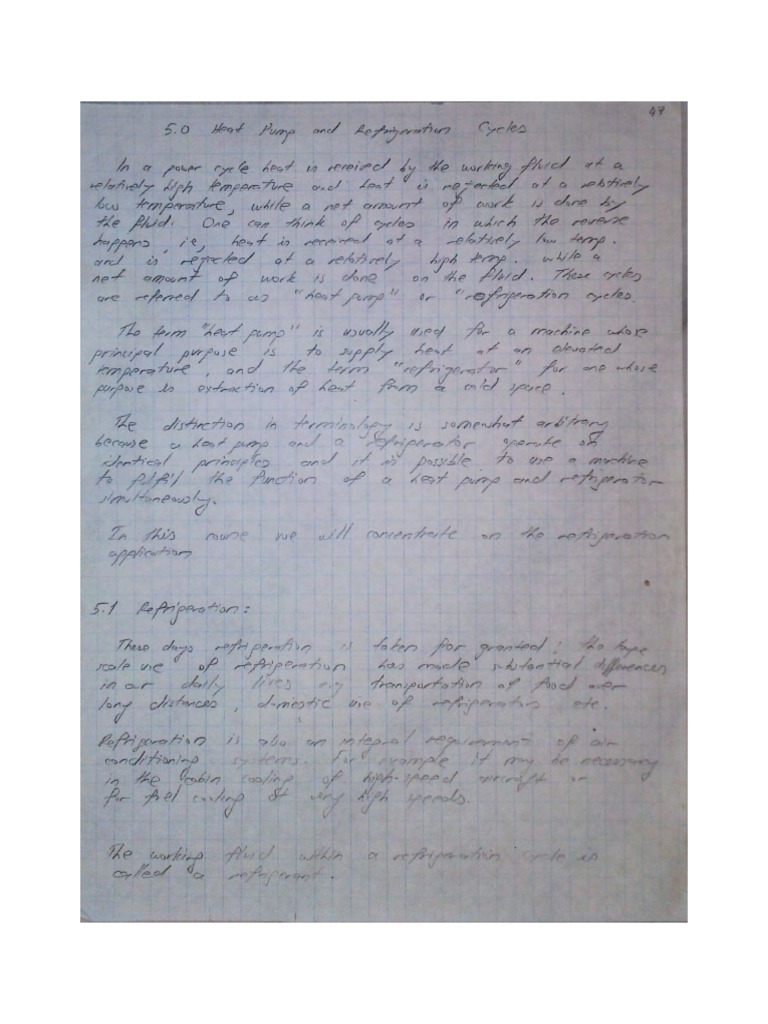 47
5.0 Heat Pump and Refrigeration Cycles
In a power cycle heat is received by the working fluid at a
relatively high temperature and heat is rejected at a relatively
low temperature, while a net amount of work is done by
the fluid. One can think of cycles in which the reverse
happens, ie, heat is received at a relatively low temp.
and is rejected at a relatively high temp. while a
net amount of work is done on the fluid. These cycles
are referred to as "heat pump" or "refrigeration cycles.
The term "heat pump" is usually used for a machine whose
principal purpose is to supply heat at an elevated
temperature, and the term "refrigerator" for one whose
purpose is extraction of heat from a cold space.
The distinction in terminology is somewhat arbitrary
because a heat pump and a refrigerator operate on
identical principles and it is possible to use a machine
to fulfil the function of a heat pump and refrigerator
simultaneously.
In this course we will concentrate on the refrigeration
application
5.1 Refrigeration:
These days refrigeration is taken for granted; the large
scale use of refrigeration has made substantial differences
in our daily lives eg transportation of food over
long distances, domestic use of refrigerators etc.
Refrigeration is also an integral requirement of air
conditioning systems. For example it may be necessary
in the cabin cooling of high-speed aircraft or
for fuel cooling at very high speeds.
The working fluid within a refrigeration cycle is
called a refrigerant.